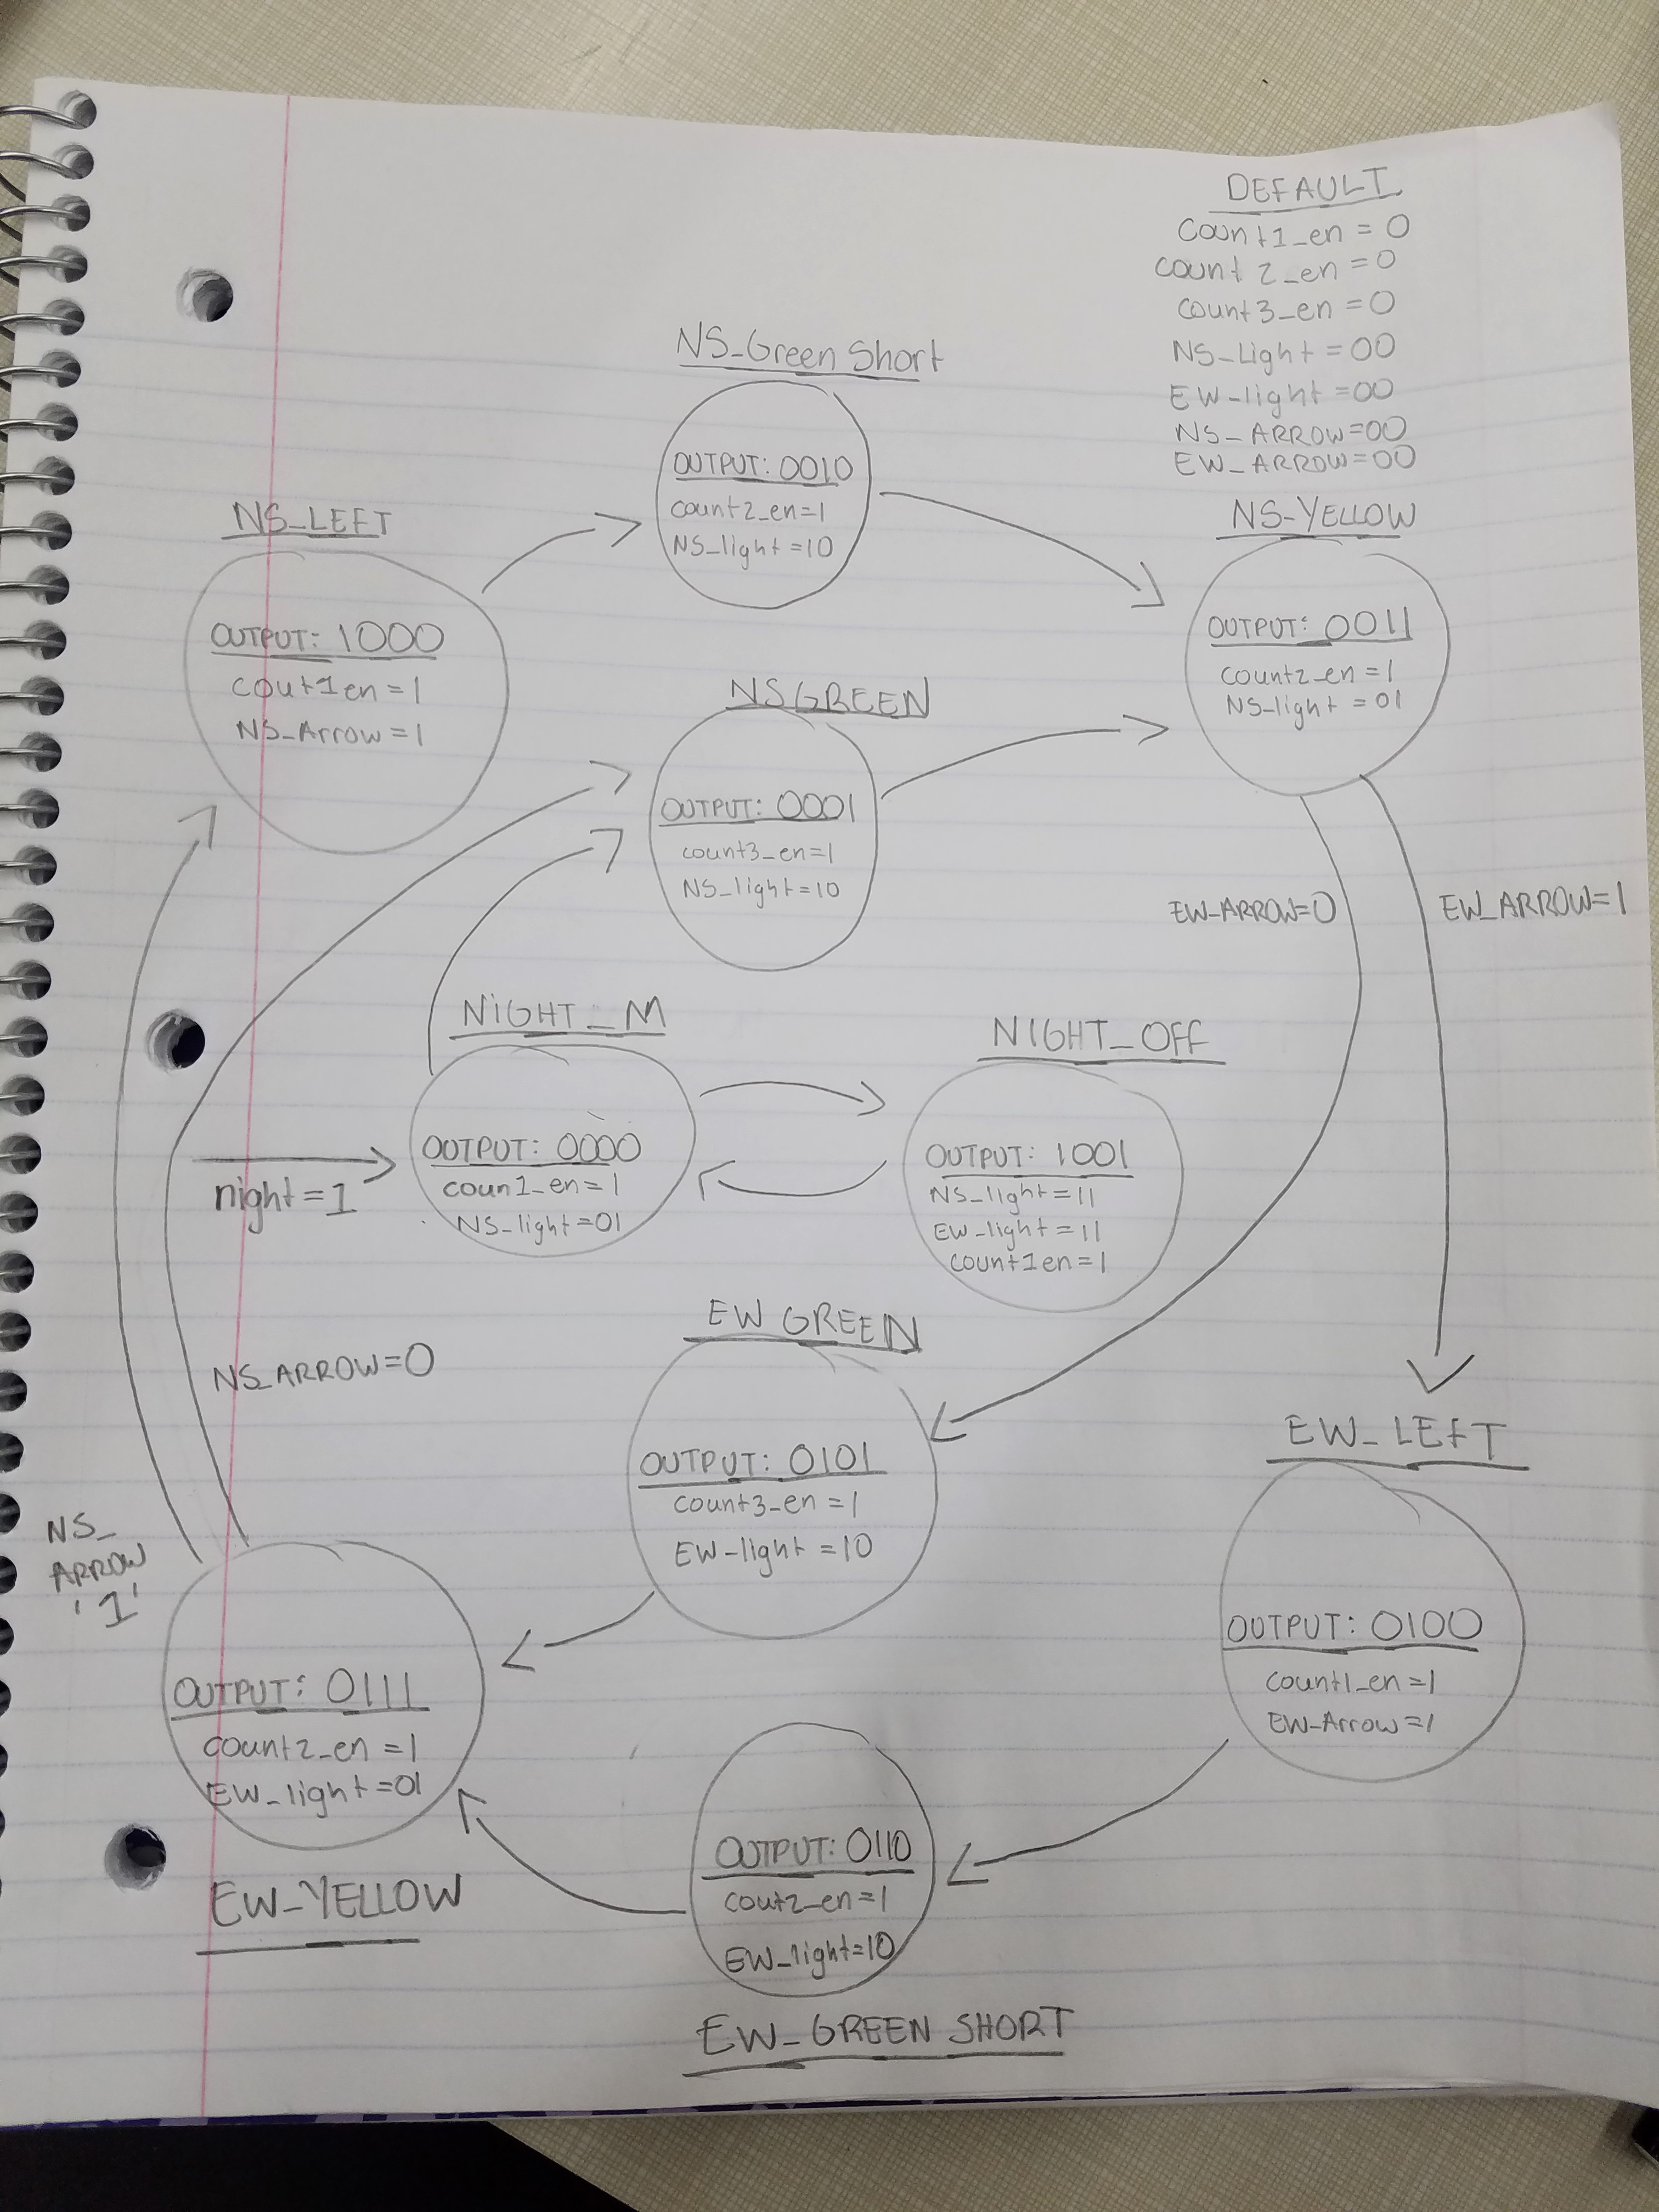 DEFAULT
Count1_en = 0
count 2_en = 0
count3_en = 0
NS-Light = 00
EW-light = 00
NS_ARROW=00
EW_ARROW=00
NS_Green Short
OUTPUT: 0010
count2_en=1
NS_light=10
NS_LEFT
OUTPUT: 1000
cout1en=1
NS_Arrow=1
NS-YELLOW
OUTPUT: 0011
count2_en=1
NS-light = 01
NSGREEN
OUTPUT: 0001
count3_en=1
NS_light=10
EW-ARROW=0
EW_ARROW=1
NIGHT_M
OUTPUT: 0000
coun1_en=1
NS_light=01
night=1
NIGHT_OFF
OUTPUT: 1001
NS_light=11
EW_light=11
count1en=1
EW GREEN
OUTPUT: 0101
count3_en=1
EW-light=10
NS_ARROW=0
NS_
ARROW
'1'
EW_LEFT
OUTPUT: 0100
count1_en=1
EW-Arrow=1
OUTPUT: 0111
count2_en=1
EW_light=01
EW_YELLOW
OUTPUT: 0110
cout2_en=1
EW_light=10
EW_GREEN SHORT